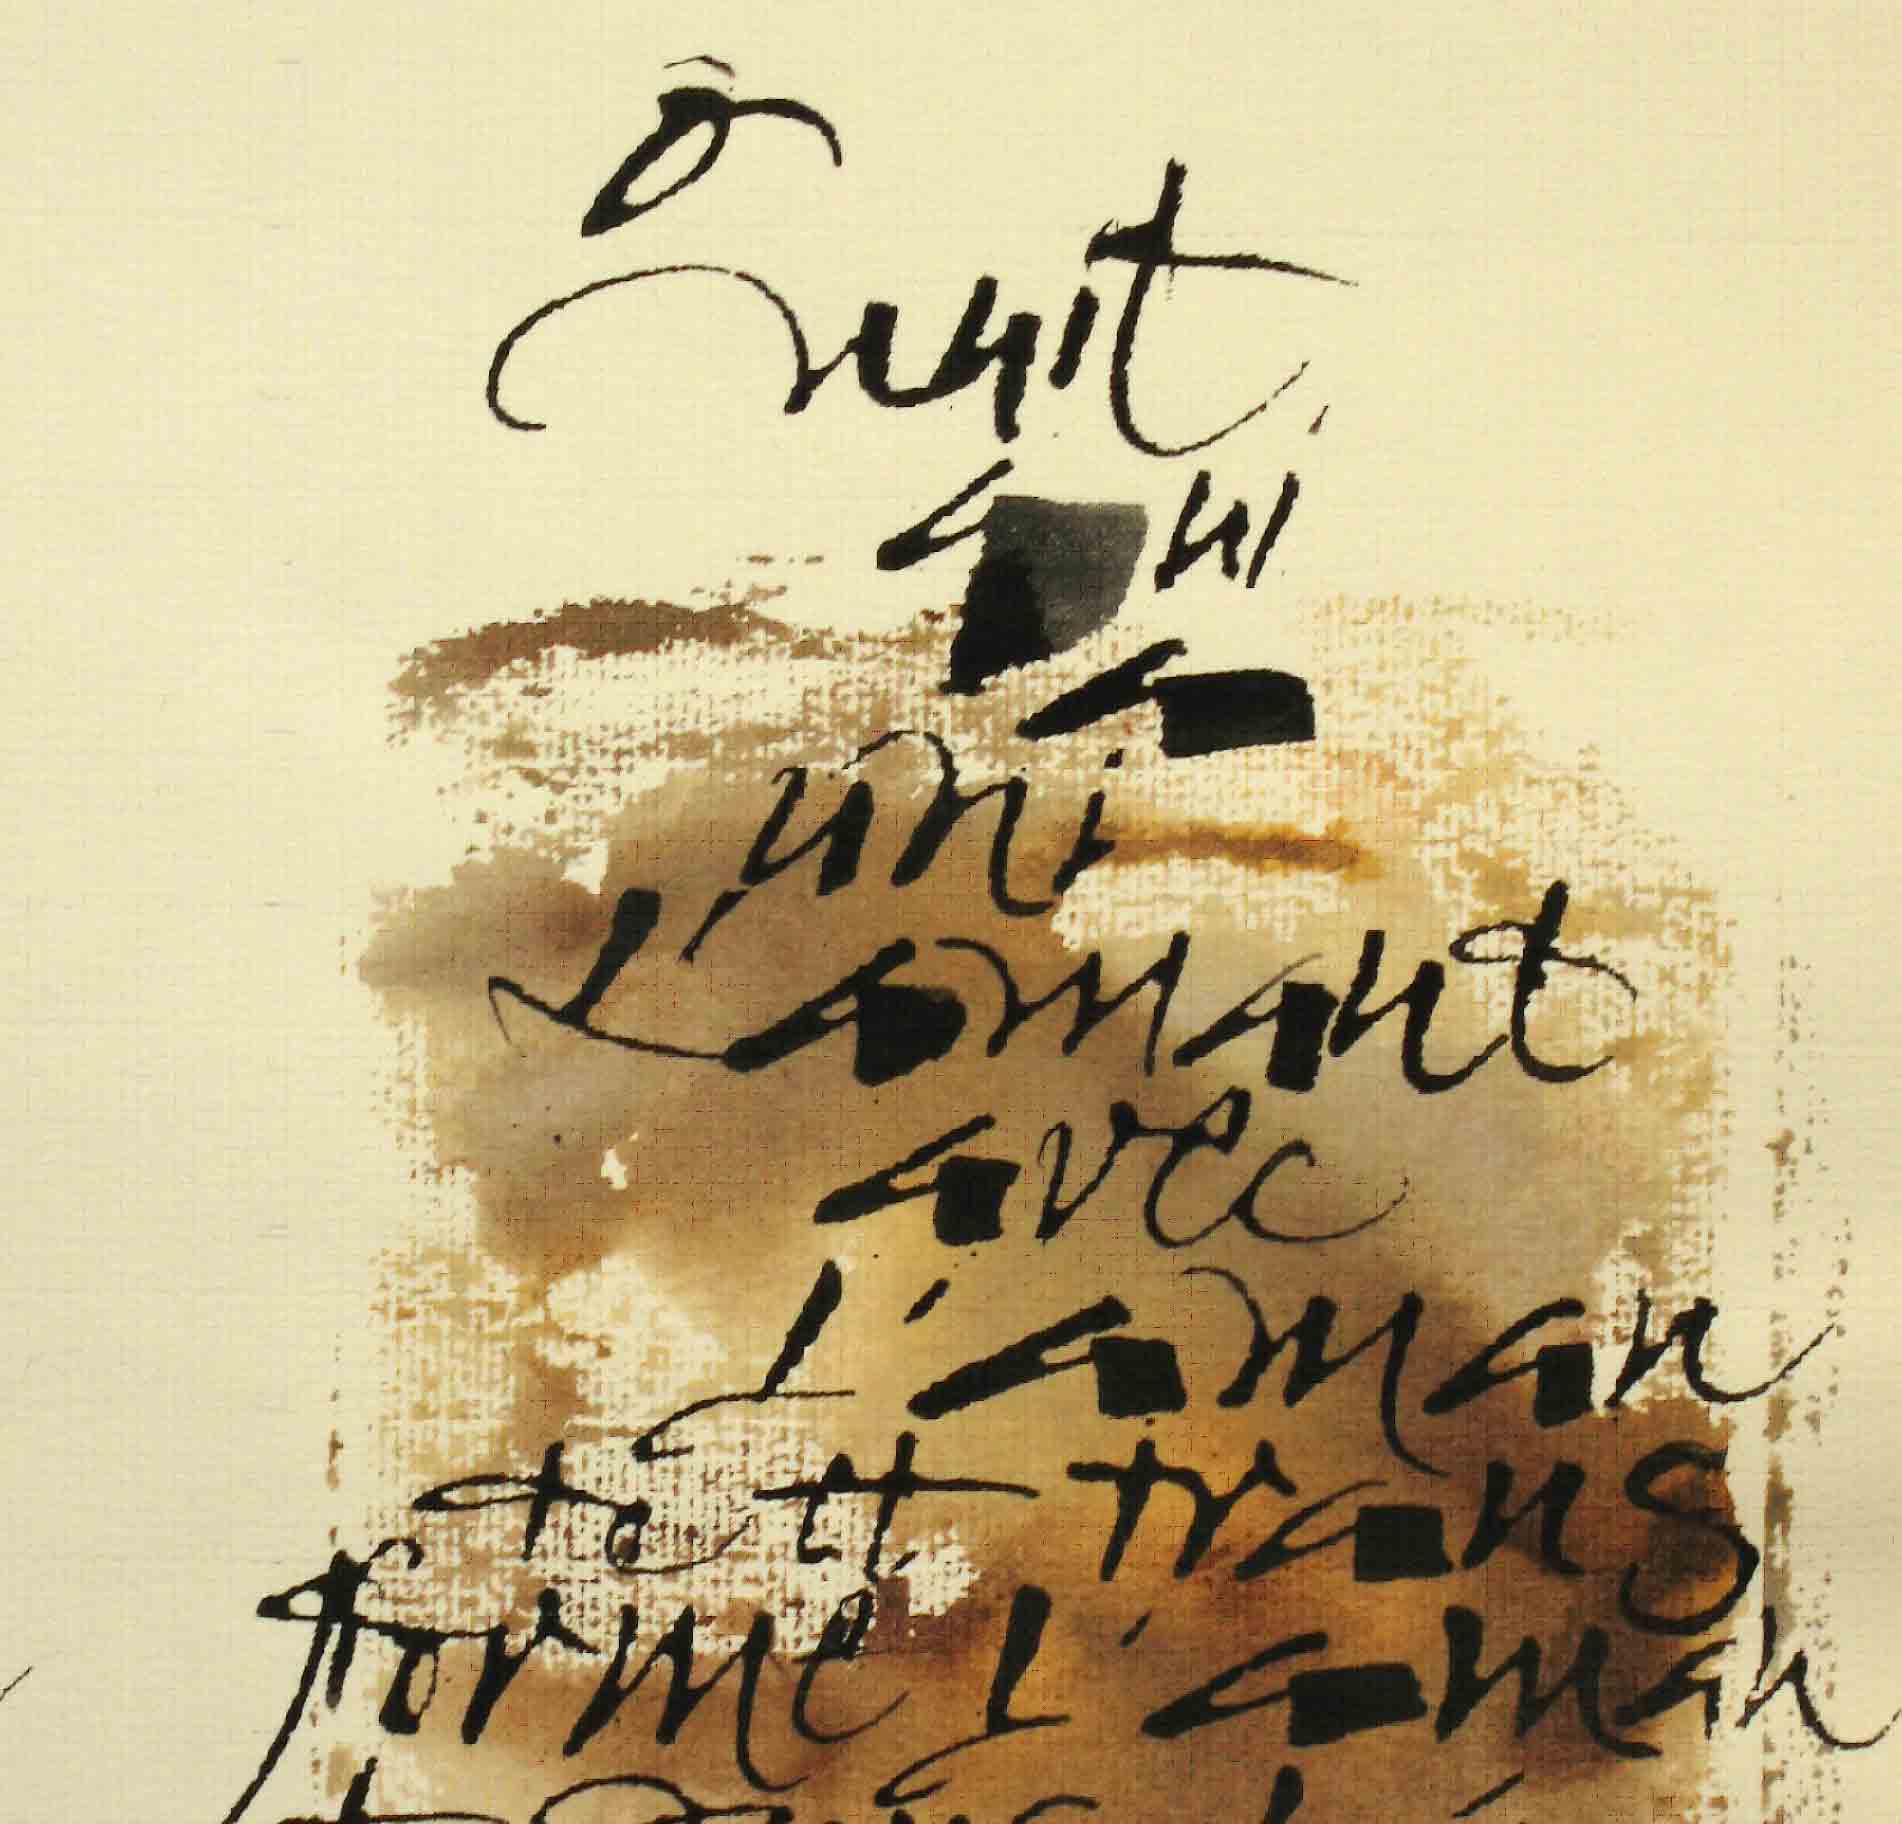 Ô
nuit,
qui
a
uni
L'amant
avec
L'aman
te et trans
forme L'aman